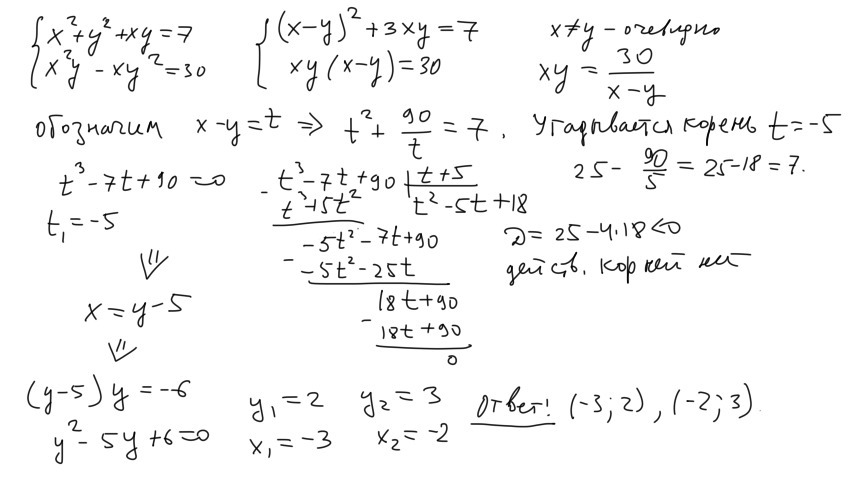 { x²+y²+xy=7
x²y - xy²=30
{ (x-y)²+3xy=7
xy(x-y)=30
x≠y - очевидно
xy = 30/(x-y)
обозначим x-y=t ⇒ t²+ 90/t = 7. Угадывается корень t=-5
25- 90/5 = 25-18=7.
t³-7t+90=0
t₁=-5
- t³-7t+90 | t+5
t³+5t² t²-5t+18
-5t²-7t+90
- -5t²-25t
18t+90
- 18t+90
0
D=25-4·18<0
действ. корней нет
⇓
x=y-5
⇓
(y-5)y=-6
y²-5y+6=0
y₁=2 y₂=3
x₁=-3 x₂=-2
Ответ! (-3;2), (-2;3).